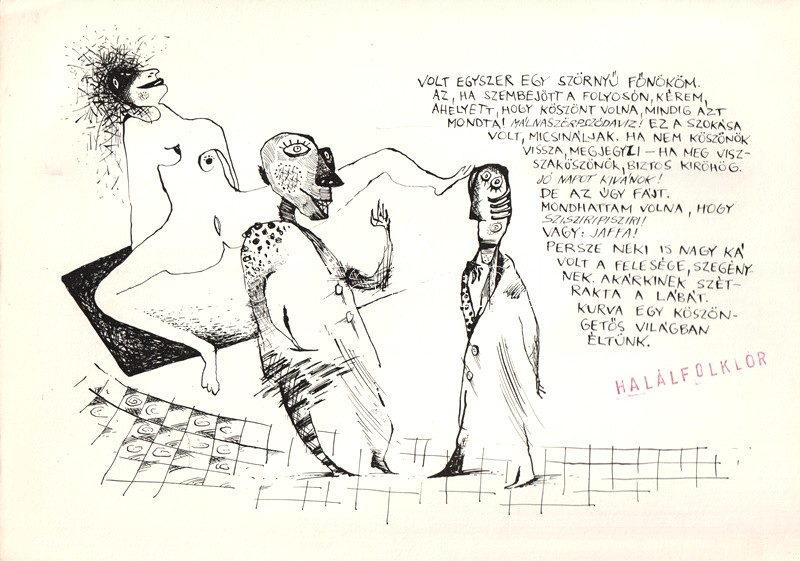 VOLT EGYSZER EGY SZÖRNYŰ FŐNÖKÖM.
AZ, HA SZEMBEJÖTT A FOLYOSÓN, KÉREM,
AHELYETT, HOGY KÖSZÖNT VOLNA, MINDIG AZT
MONDTA! MÁLNASZÖRPSZÓDAVIZ! EZ A SZOKÁSA
VOLT, MICSINÁLJAK. HA NEM KÖSZÖNÖK
VISSZA, MEGJEGYZI – HA MEG VISZ-
SZAKÖSZÖNÖK, BIZTOS KIRÖHÖG.
JÓ NAPOT KIVÁNOK!
DE AZ ÚGY FÁJT.
MONDHATTAM VOLNA, HOGY
SZISZIRIPISZIRI!
VAGY: JAFFA!
PERSZE NEKI IS NAGY KÁ
VOLT A FELESÉGE, SZEGÉNY-
NEK. AKÁRKINEK SZÉT-
RAKTA A LÁBÁT.
KURVA EGY KÖSZÖN-
GETŐS VILÁGBAN
ÉLTÜNK.
HALÁLFOLKLÓR